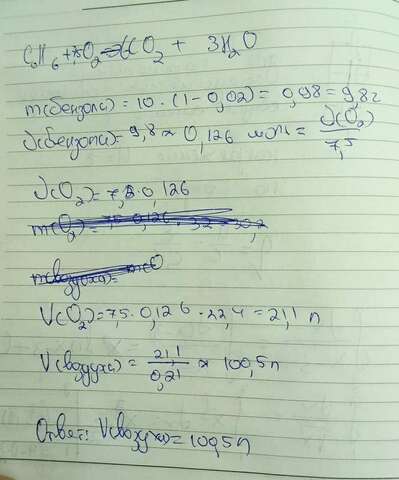 C₆H₆ + 7,5O₂ → 6CO₂ + 3H₂O
m(бензола) = 10 · (1 - 0,02) = 0,98 = 9,8г
ν(бензола) = 9,8 ≈ 0,126 моль = ν(O₂) / 7,5
ν(O₂) = 7,5 · 0,126
m(O₂) = 7,5 · 0,126 · 32 = 30,2
m(воздуха) =
V(O₂) = 7,5 · 0,126 · 22,4 = 21,1 л
V(воздуха) = 21,1 / 0,21 ≈ 100,5 л
Ответ: V(воздуха) = 100,5 л